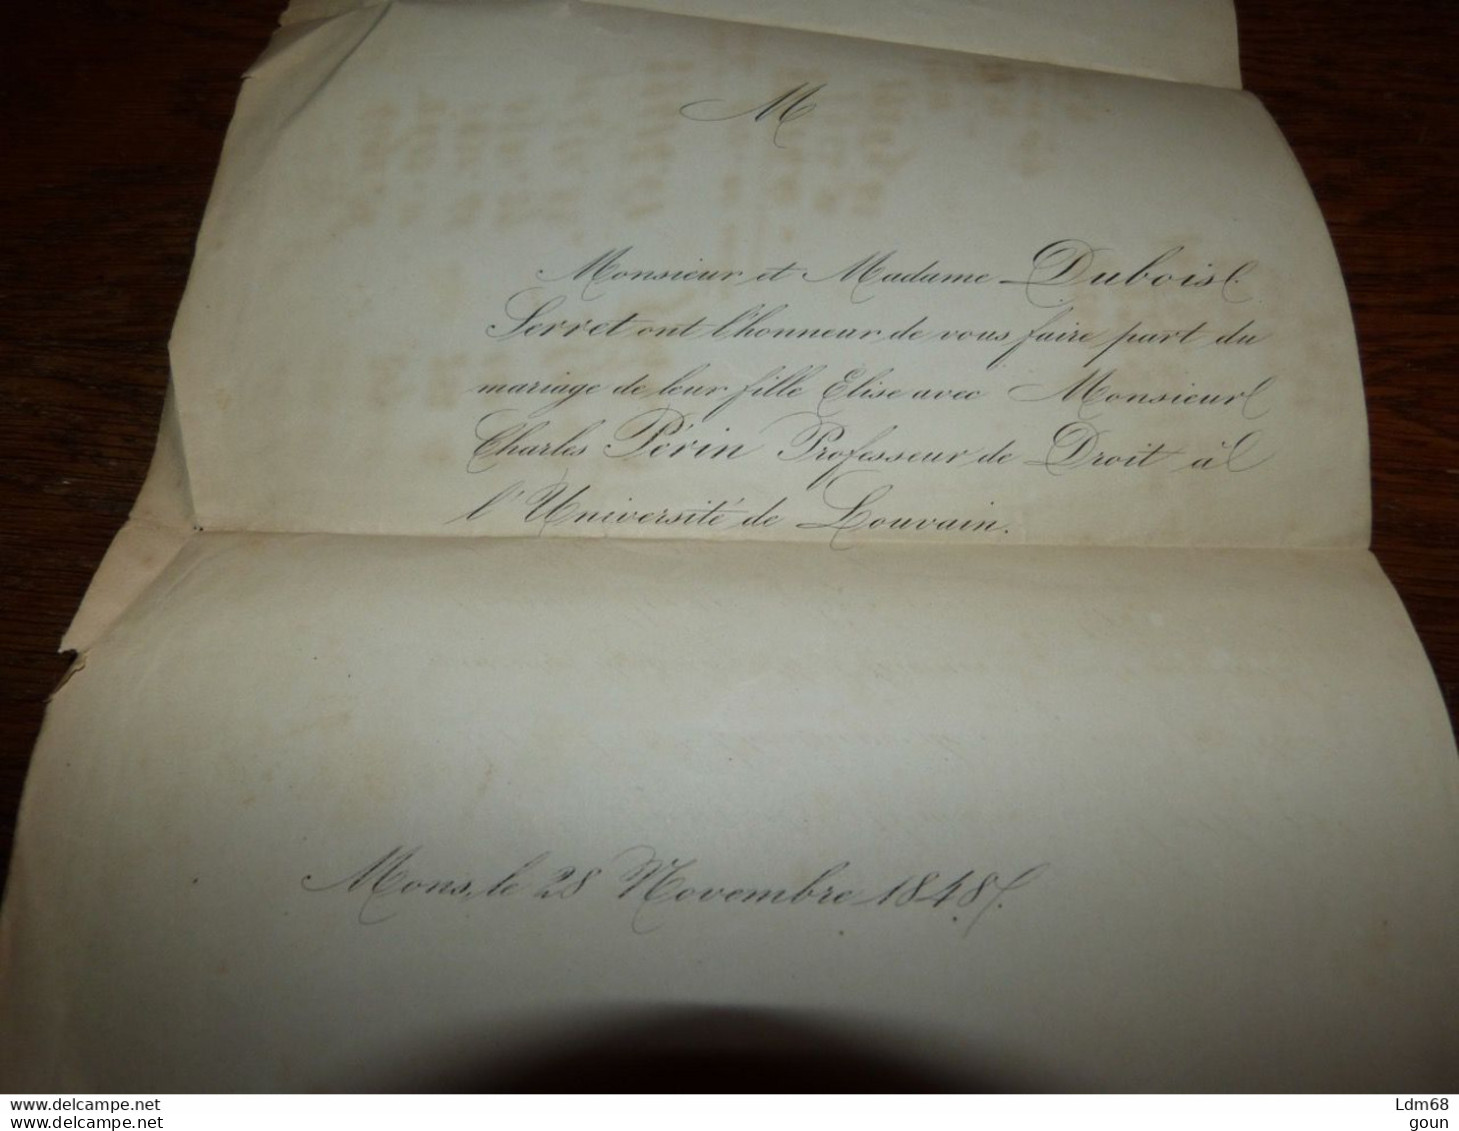 M
Monsieur et Madame Dubois
Serret ont l'honneur de vous faire part du
mariage de leur fille Elise avec Monsieur
Charles Périn Professeur de Droit à
l'Université de Louvain.
Mons, le 28 Novembre 1848.
www.delcampe.net
www.delcampe.net
Ldm68
goun